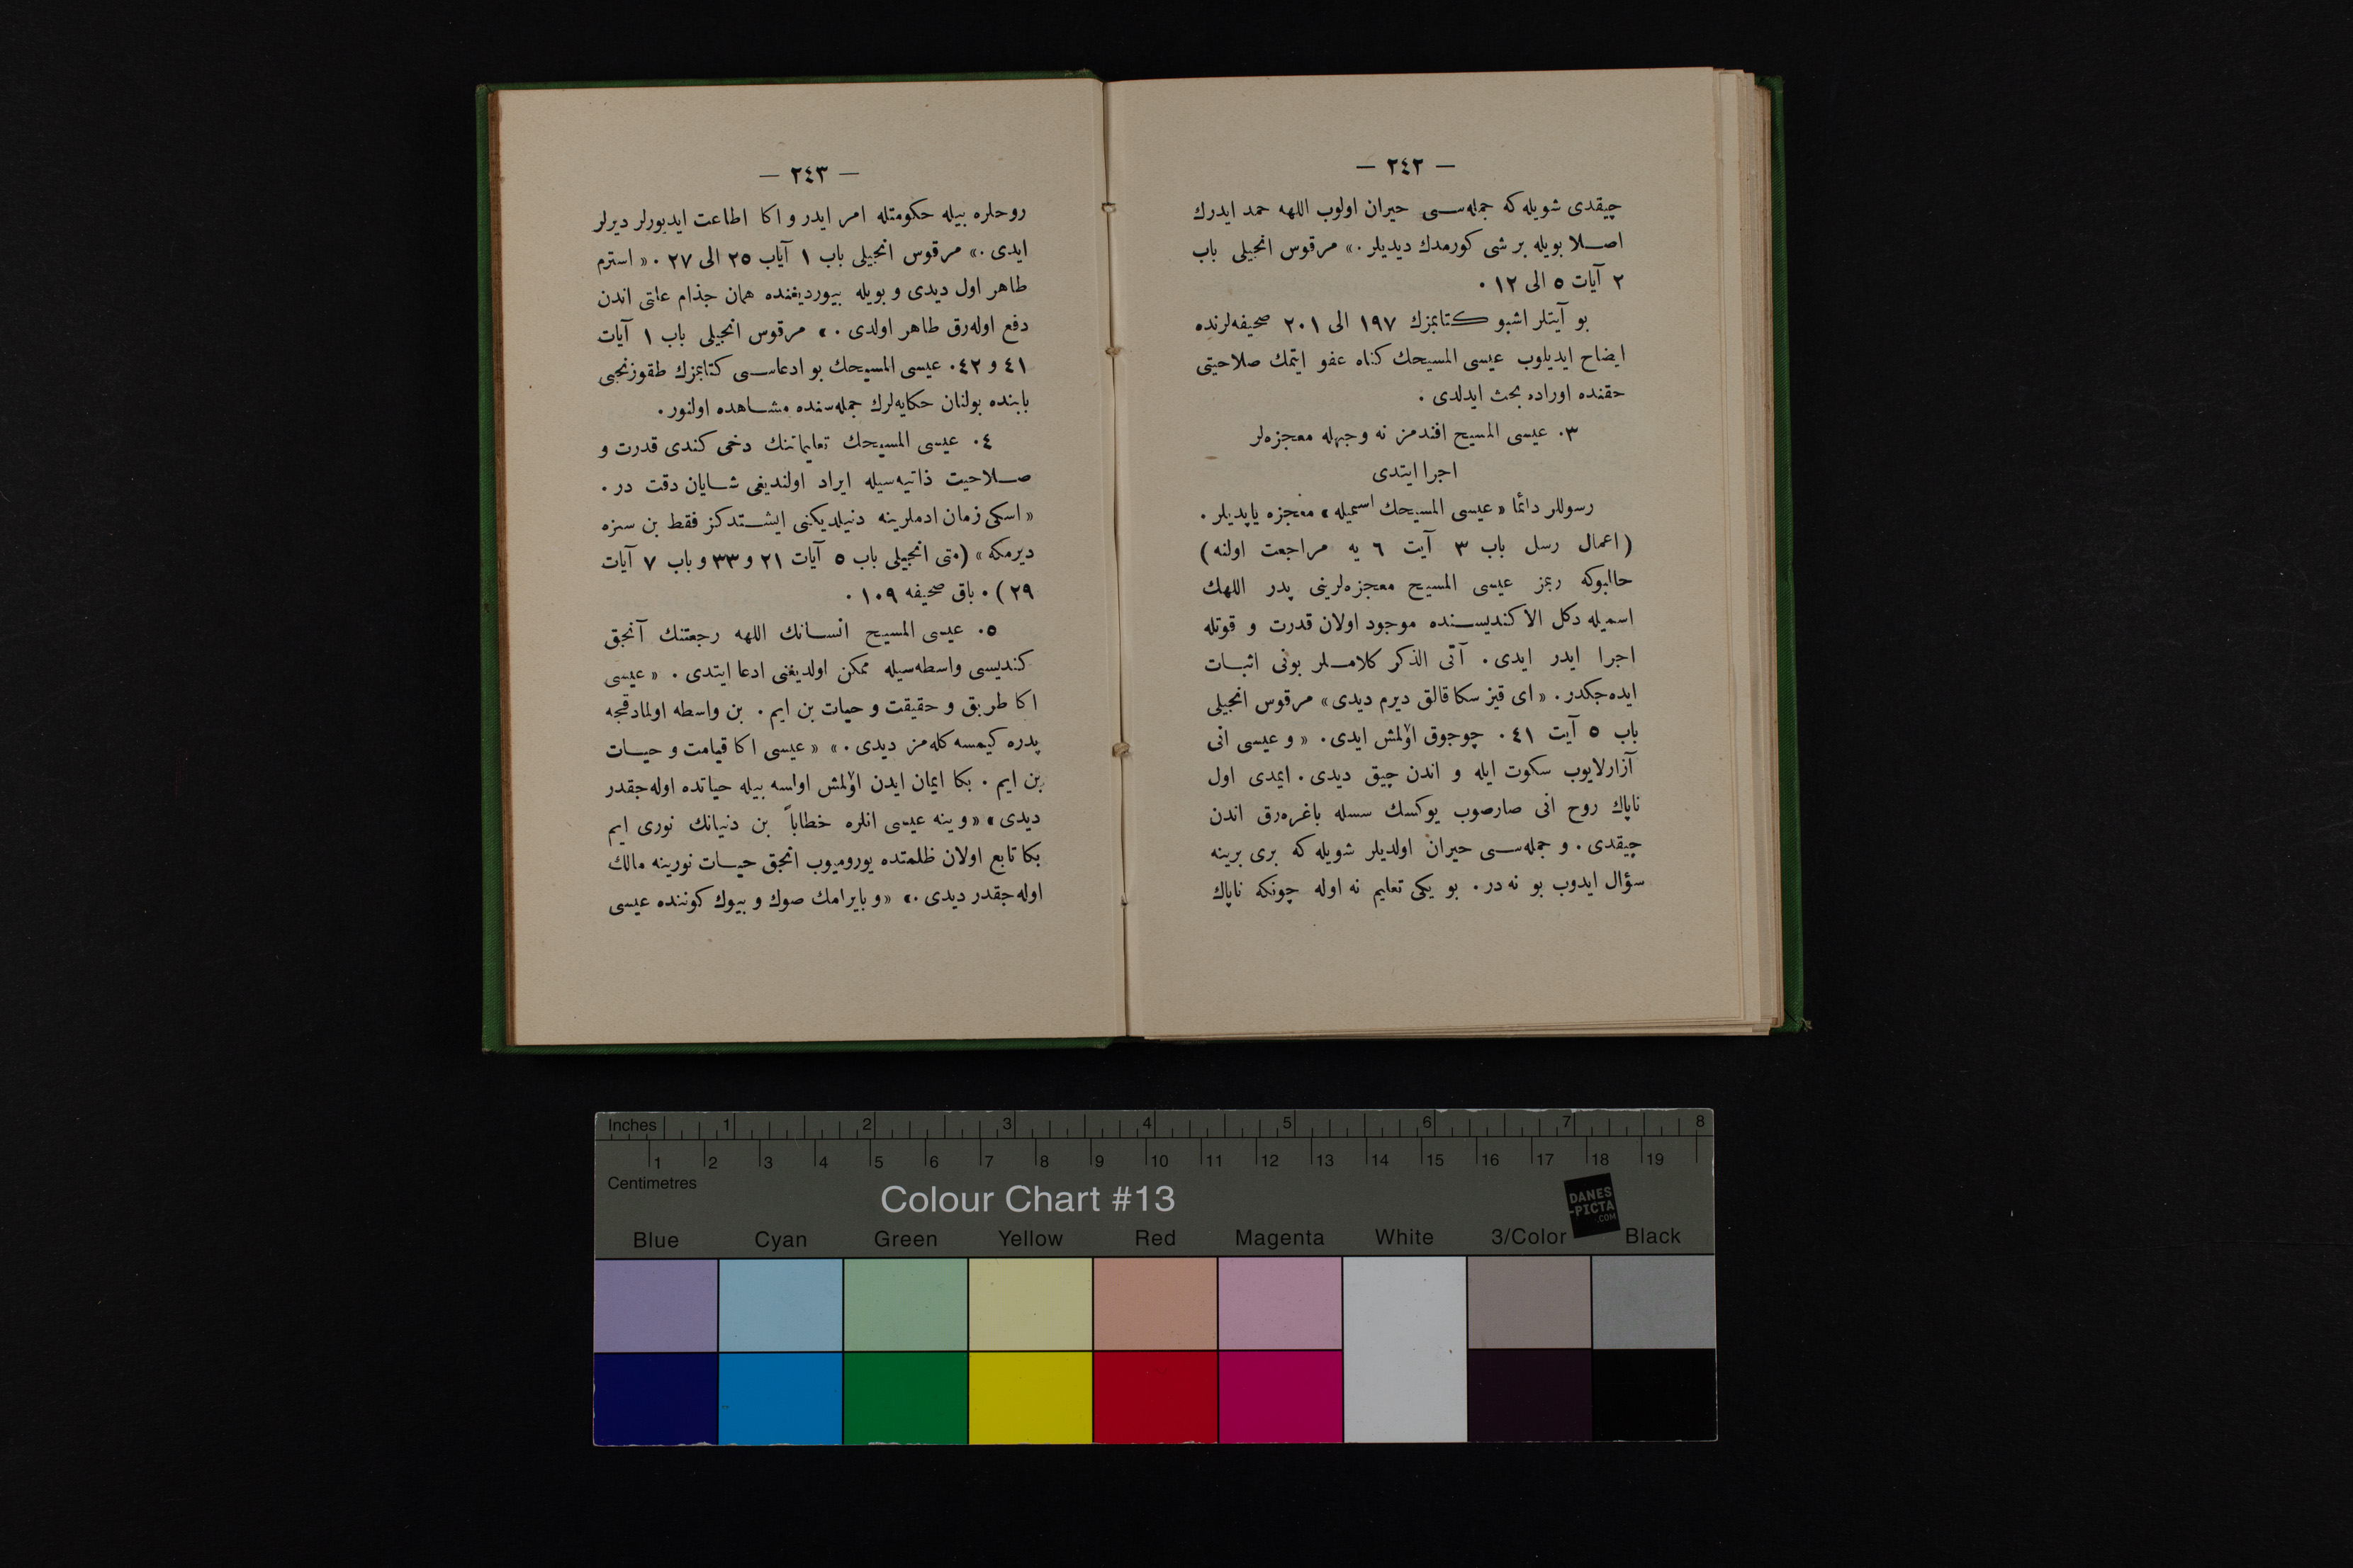 — ٢٤٢ —
چیقدی شویله که جمله‌سی حیران اولوب اللهه حمد ایدرك
اصلا بویله بر شی کورمدك دیدیلر .» مرقوس انجیلی باب
٢ آیات ٥ الی ١٢ .
بو آیتلر اشبو کتابمزك ١٩٧ الی ٢٠١ صحیفه‌لرنده
ایضاح ایدیلوب عیسی المسیحك کناه عفو ایتمك صلاحیتی
حقنده اوراده بحث ایدلدی .
٣. عیسی المسیح افندمز نه وجهله معجزه‌لر
اجرا ایتدی
رسوللر دائما « عیسی المسیحك اسمیله » معجزه یاپدیلر .
( اعمال رسل باب ٣ آیت ٦ یه مراجعت اولنه )
حالبوکه ربمز عیسی المسیح معجزه‌لرینی پدر اللهك
اسمیله دکل الا کندیسنده موجود اولان قدرت و قوتله
اجرا ایدر ایدی . آتی الذکر کلاملر بونی اثبات
ایده‌جکدر . « ای قیز سکا قالق دیرم دیدی » مرقوس انجیلی
باب ٥ آیت ٤١ . چوجوق اؤلمش ایدی . « و عیسی انی
آزارلایوب سکوت ایله و اندن چیق دیدی . ایمدی اول
ناپاك روح انی صارصوب یوکسك سسله باغره‌رق اندن
چیقدی . و جمله‌سی حیران اولدیلر شویله که بری برینه
سؤال ایدوب بو نه در . بو یکی تعلیم نه اوله چونکه ناپاك
— ٢٤٣ —
روحلره بیله حکومتله امر ایدر و اکا اطاعت ایدیورلر دیرلر
ایدی .» مرقوس انجیلی باب ١ آیاب ٢٥ الی ٢٧ . « استرم
طاهر اول دیدی و بویله بیوردیغنده همان جذام علتی اندن
دفع اوله‌رق طاهر اولدی . » مرقوس انجیلی باب ١ آیات
٤١ و ٤٢. عیسی المسیحك بو ادعاسی کتابمزك طقوزنجی
بابنده بولنان حکایه‌لرك جمله‌سنده مشاهده اولنور .
٤. عیسی المسیحك تعلیماتنك دخی کندی قدرت و
صلاحیت ذاتیه‌سیله ایراد اولندیغی شایان دقت در .
« اسکی زمان ادملرینه دنیلدیکنی ایشتدکز فقط بن سزه
دیرمکه » ( متی انجیلی باب ٥ آیات ٢١ و ٣٣ و باب ٧ آیات
٢٩ ) . باق صحیفه ١٠٩ .
٥. عیسی المسیح انسانك اللهه رجعتنك آنجق
کندیسی واسطه‌سیله ممکن اولدیغنی ادعا ایتدی . « عیسی
اکا طریق و حقیقت و حیات بن ایم . بن واسطه اولمادقجه
پدره کیمسه کله‌مز دیدی . » « عیسی اکا قیامت و حیات
بن ایم . بکا ایمان ایدن اؤلمش اولسه بیله حیاتده اوله‌جقدر
دیدی » « و ینه عیسی انلره خطاباً بن دنیانك نوری ایم
بکا تابع اولان ظلمتده یورومیوب انجق حیات نورینه مالك
اوله‌جقدر دیدی .» « و بایرامك صوك و بیوك کوننده عیسی
Inches 1 2 3 4 5 6 7 8
1 2 3 4 5 6 7 8 9 10 11 12 13 14 15 16 17 18 19
Centimetres
Colour Chart #13
DANES
-PICTA
.COM
Blue Cyan Green Yellow Red Magenta White 3/Color Black